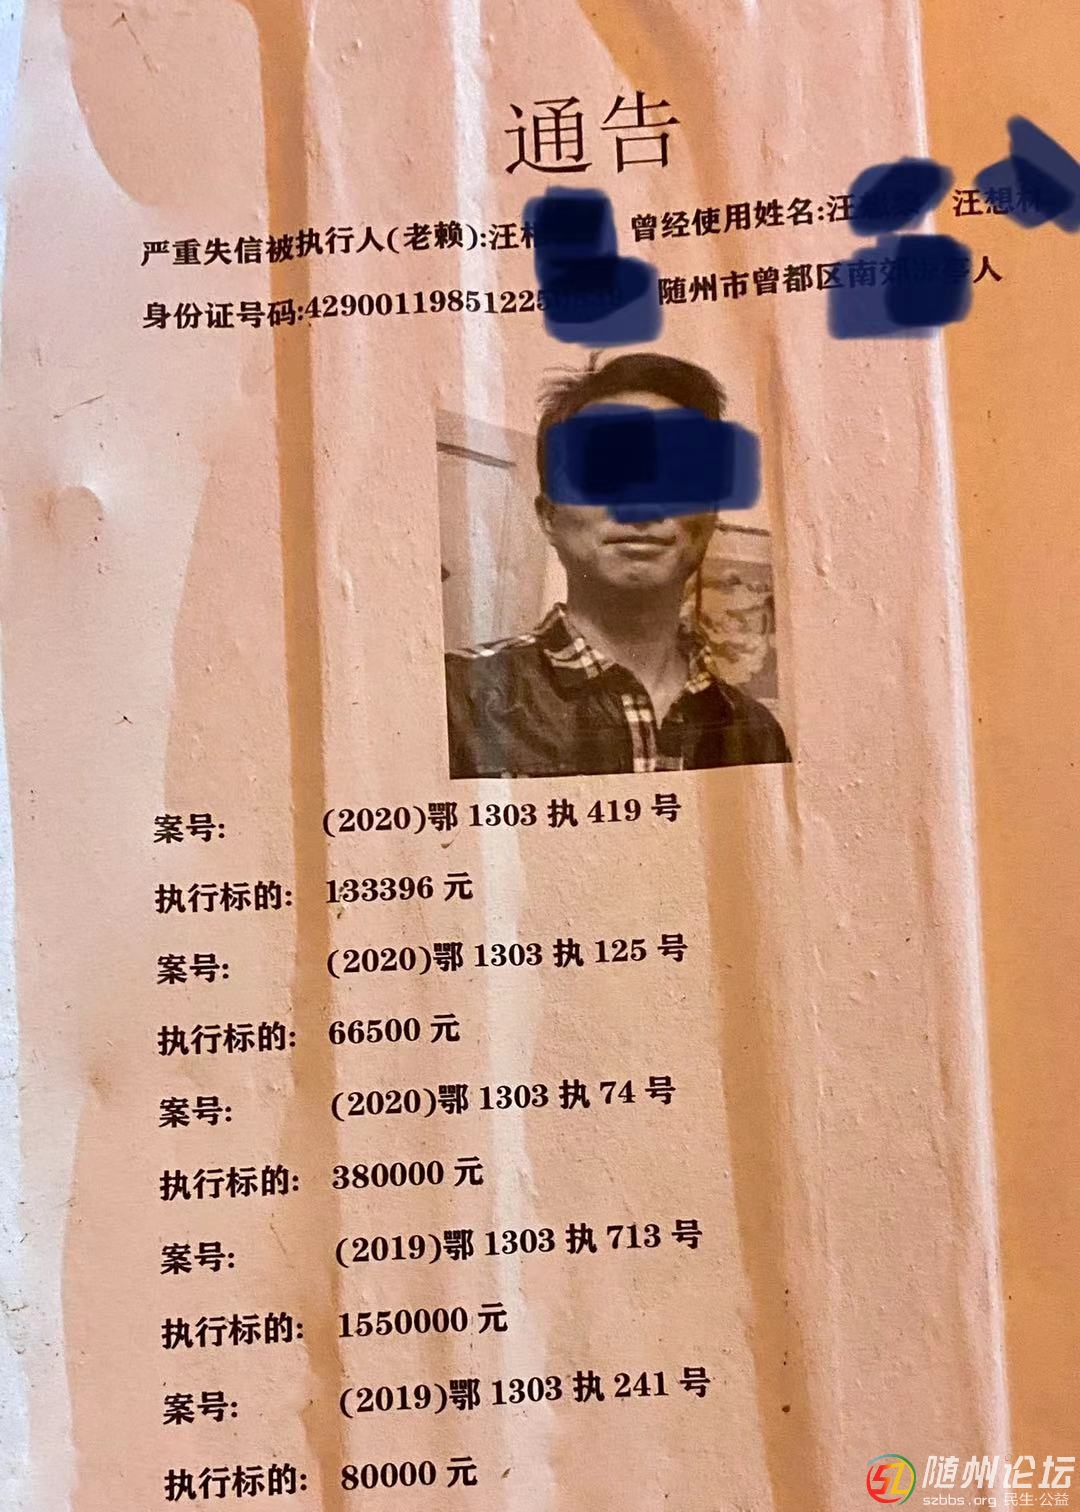 通告
严重失信被执行人(老赖):汪 曾经使用姓名:汪 汪想
身份证号码:42900119851225 随州市曾都区南郊 人
案号: (2020)鄂 1303 执 419 号
执行标的: 133396 元
案号: (2020)鄂 1303 执 125 号
执行标的: 66500 元
案号: (2020)鄂 1303 执 74 号
执行标的: 380000 元
案号: (2019)鄂 1303 执 713 号
执行标的: 1550000 元
案号: (2019)鄂 1303 执 241 号
执行标的: 80000 元
随州论坛
szbbs.org 民生·公益